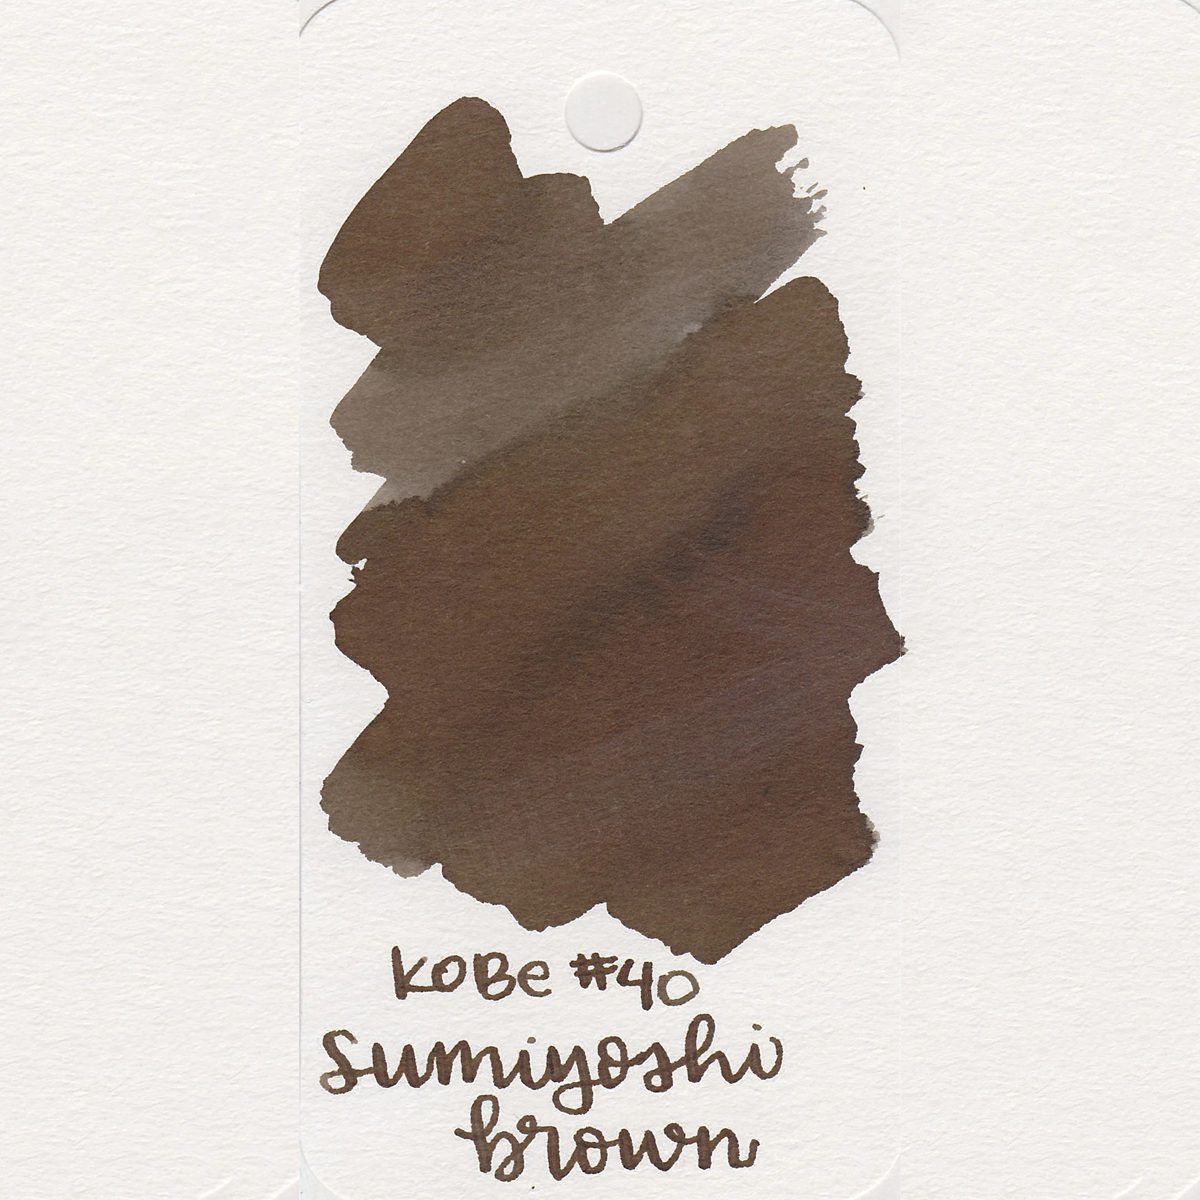 KOBe #40
Sumiyoshi
brown